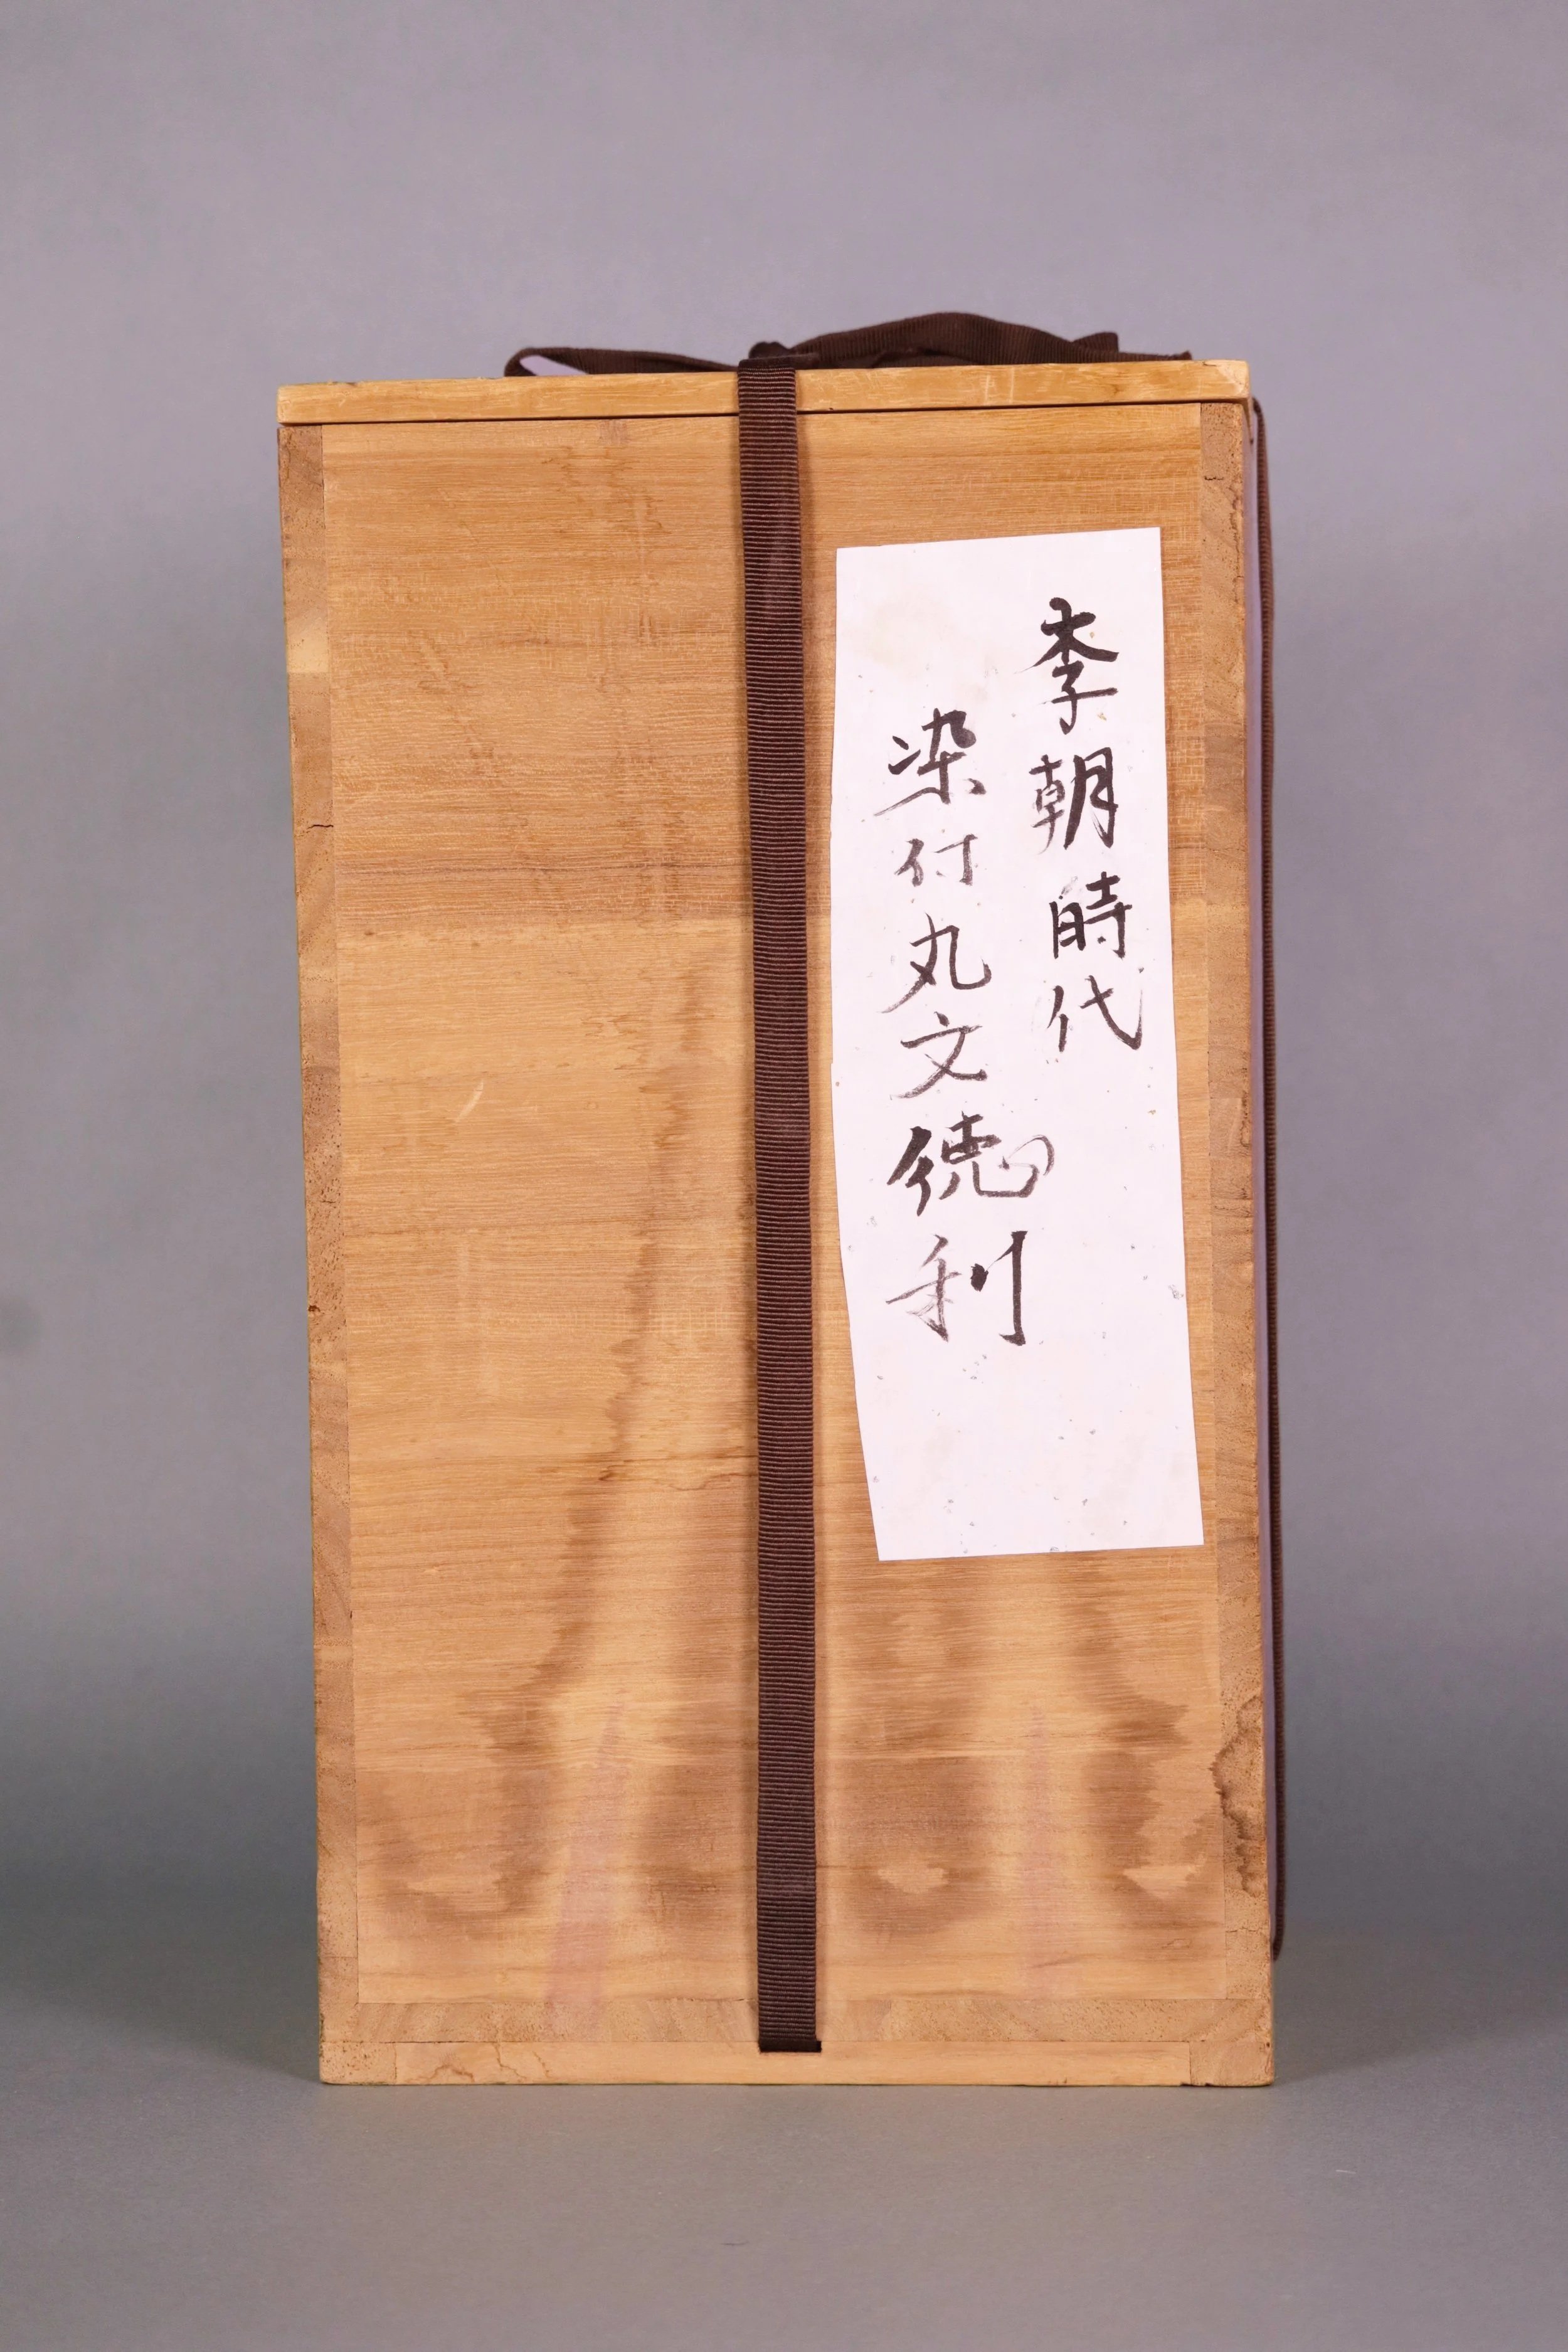 李朝時代
染付丸文徳利